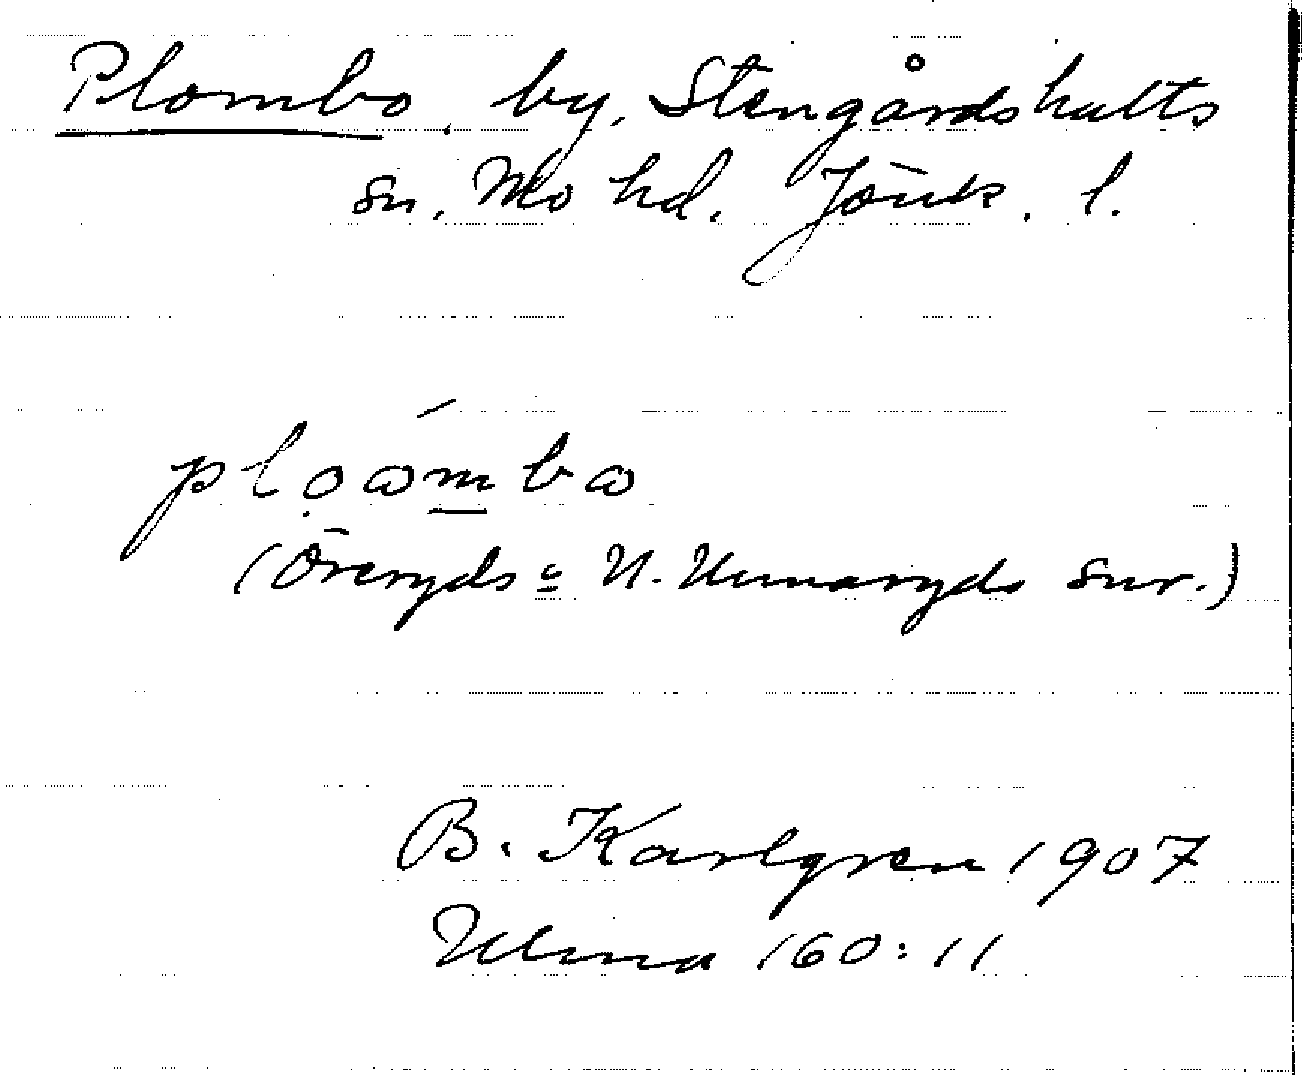 Plombo, by, Stengårdshults
sn, Mo hd. Jönk. l.
(Öreryds o N. Unnaryds snr.)
B. Karlgren 1907
Ulma 160:11